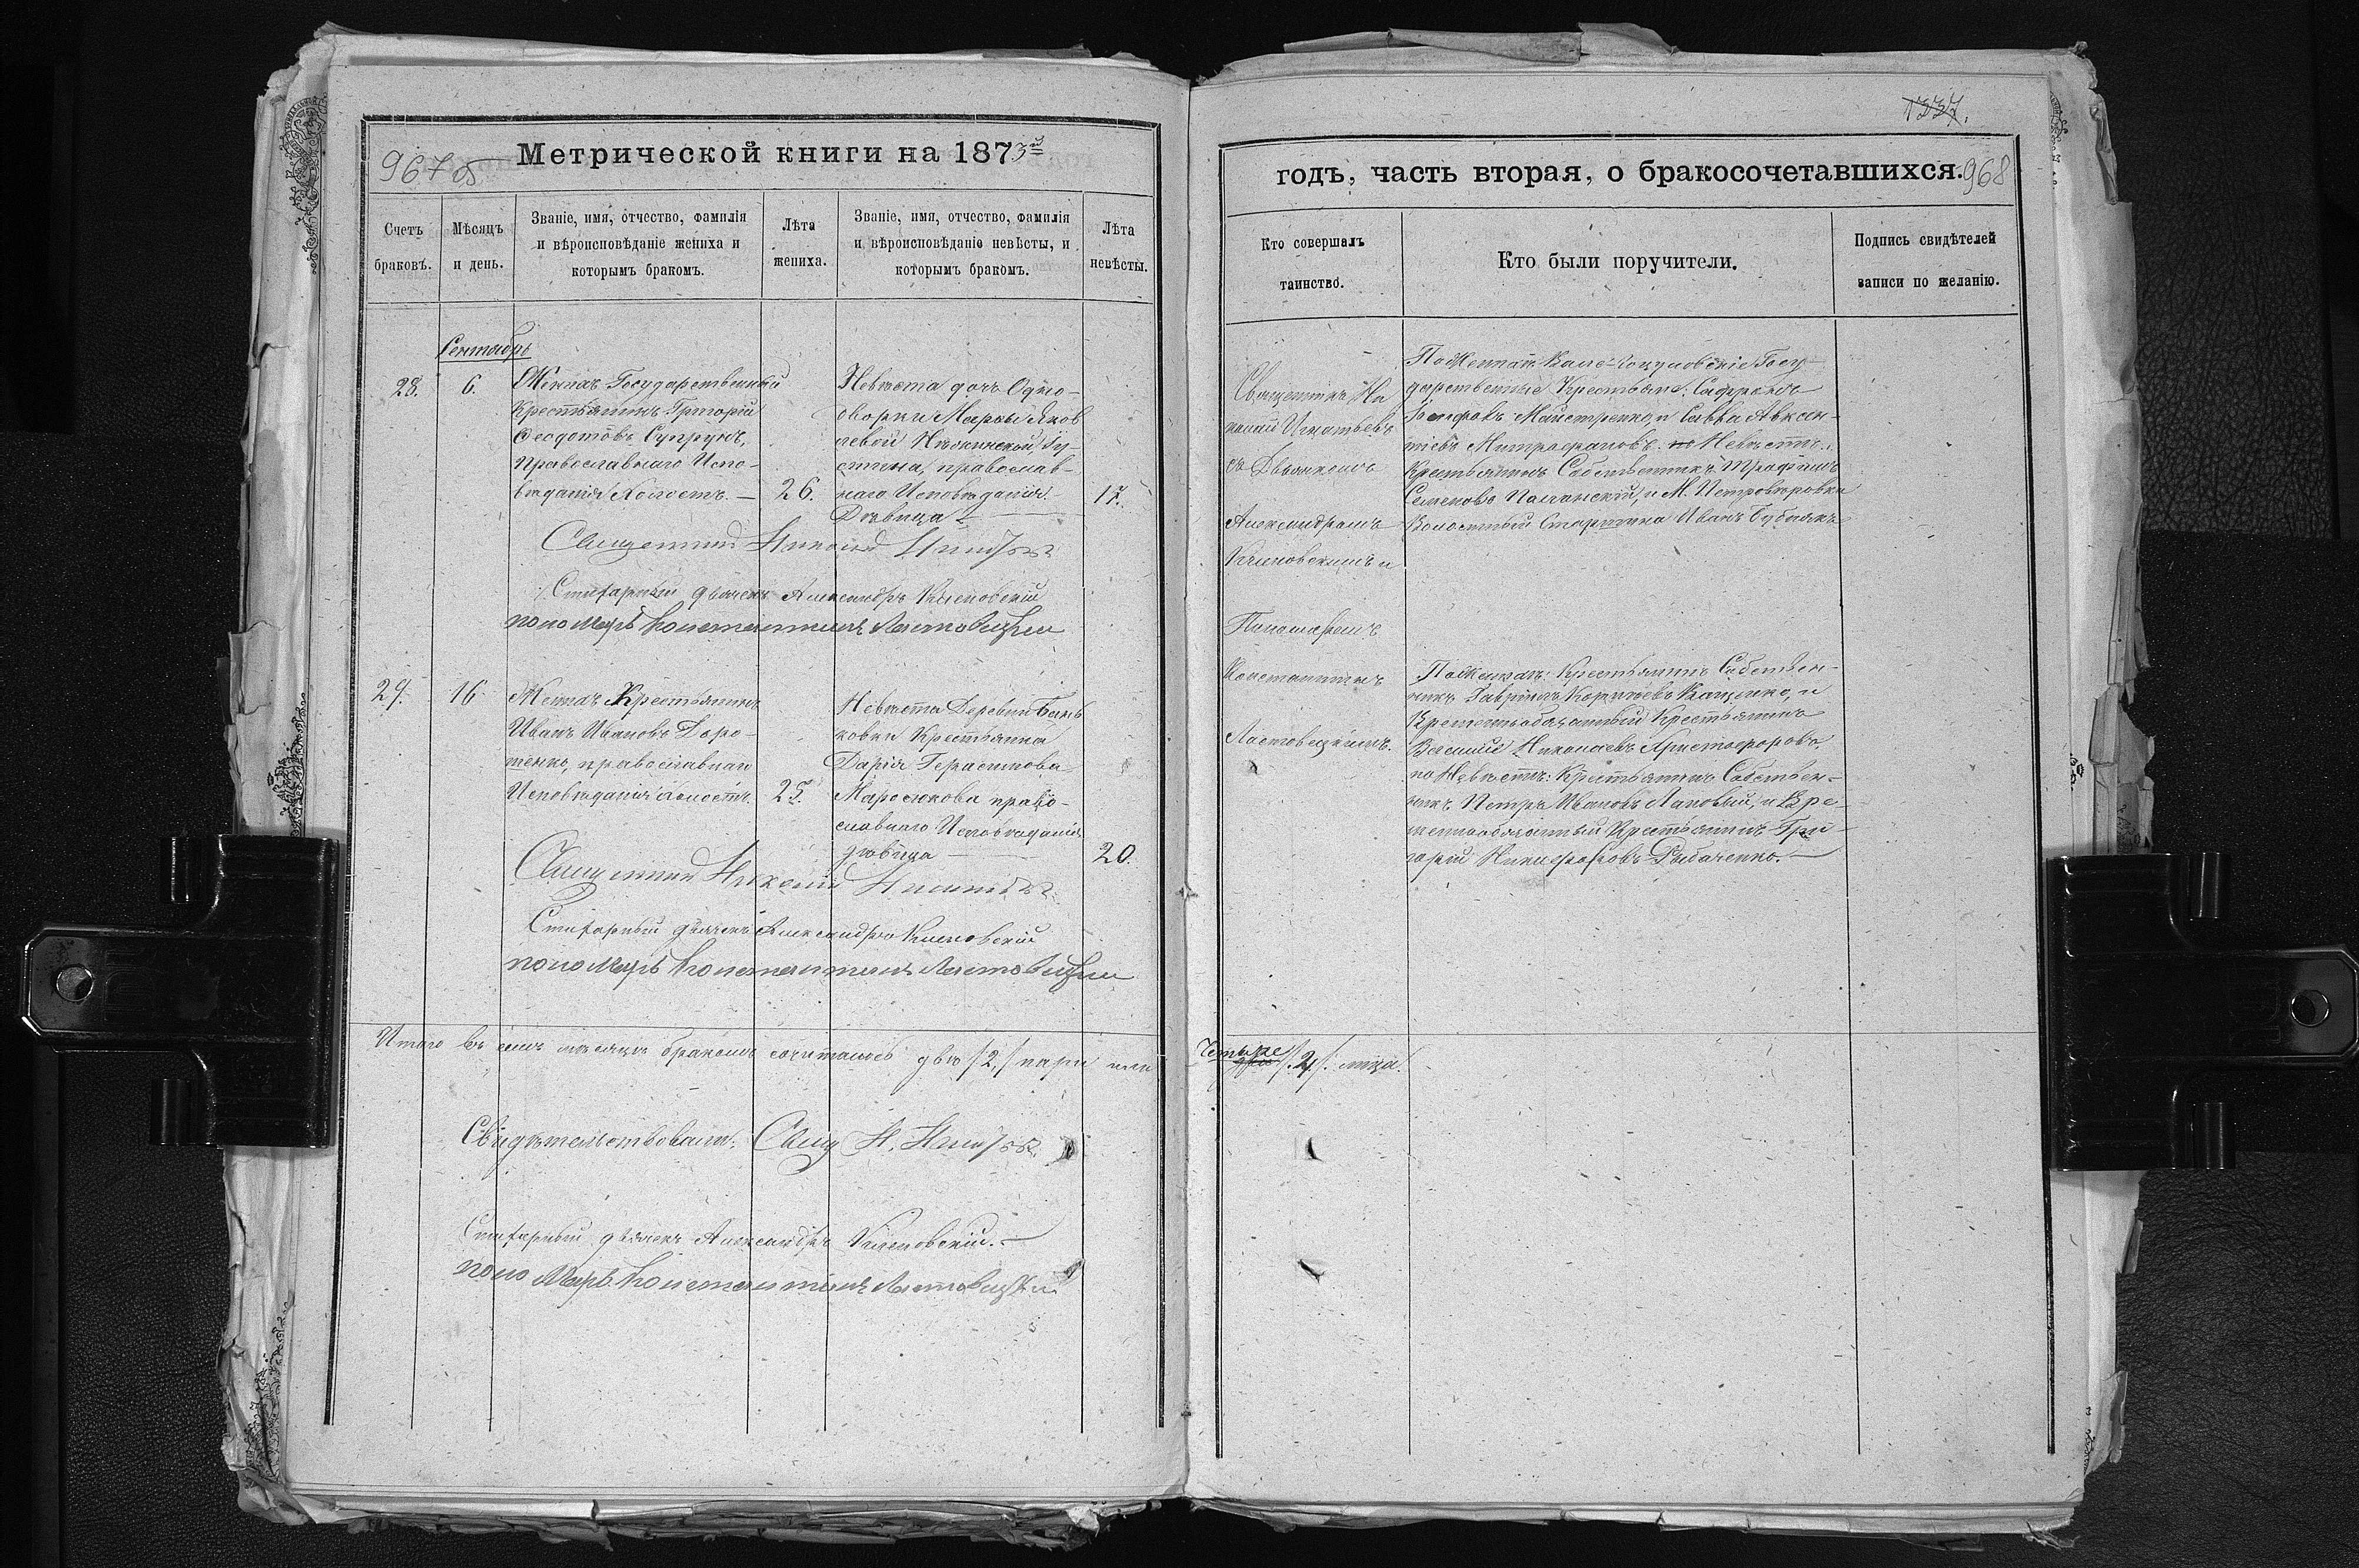 967 об
Метрической книги на 1873й
Счетъ браковъ.
Мѣсяцъ и день.
Званіе, имя, отчество, фамилія
и вѣроисповѣданіе жениха и
которымъ бракомъ.
Лѣта жениха.
Званіе, имя, отчество, фамилія
и вѣроисповѣданіе невѣсты, и
которымъ бракомъ.
Лѣта невѣсты.
Сентябрь
28.
6.
Женихъ Государственный
Крестьянинъ Григорій
Ѳеодотовъ Супрунъ,
Православнаго Испо-
вѣданія Холостъ. —
26.
Невѣста дочь Одно-
дворки Марѳы Яков
левой
православ-
наго Исповѣданія
Дѣвица
17.
Священникъ Николай Игнатьевъ
Стихарный дьячекъ Александръ
пономарь Константинъ Лястовицкій
29.
16.
Женихъ Крестьянинъ
Иванъ Ивановъ Доро-
тенко, православнаго
Исповѣданія холостъ.
25.
Невѣста Деревни
ковки Крестьянка
Дарія Герасимова
Маросюкова право-
славнаго Исповѣданія
дѣвица —
20.
Священникъ Николай Игнатьевъ
Стихарный дьячекъ Александръ
пономарь Константинъ Лястовицкій
Итого въ семъ мѣсяцѣ бракомъ сочиталось двѣ /2/ пары или
Свидѣтельствовали: Свящ Н. Игнатьевъ
Стихарный дьячекъ Александръ
пономарь Константинъ Лястовицкій
1337.
годъ, часть вторая, о бракосочетавшихся.
968
Кто совершалъ таинство.
Кто были поручители.
Подпись свидѣтелей записи по желанію.
Священникъ Ни
колай Игнатьевъ
съ Дьячкомъ
Александромъ
и
Пономаремъ
Константиномъ
Лястовицкимъ.
По Женихѣ Госу-
дарственные Крестьяне: Сафронъ
Майстренко, и Савва Авксен-
тіевъ Митрофановъ. по Невѣстѣ:
Крестьянинъ Собственникъ Трофимъ
Семеновъ и М. Петровѣровки
Волостный Старшина Иванъ
По Женихѣ: Крестьянинъ Собствен-
никъ Гавріилъ Корнѣевъ Кащенко, и
Временнообязанный Крестьянинъ
Василій Николаевъ Христофоровъ,
по Невѣстѣ: Крестьянинъ Собствен-
никъ Петръ Ивановъ и Вре-
меннообязанный Крестьянинъ Гри-
горій Никифоровъ Рыбаченко. —
Четыре /4/ лица.